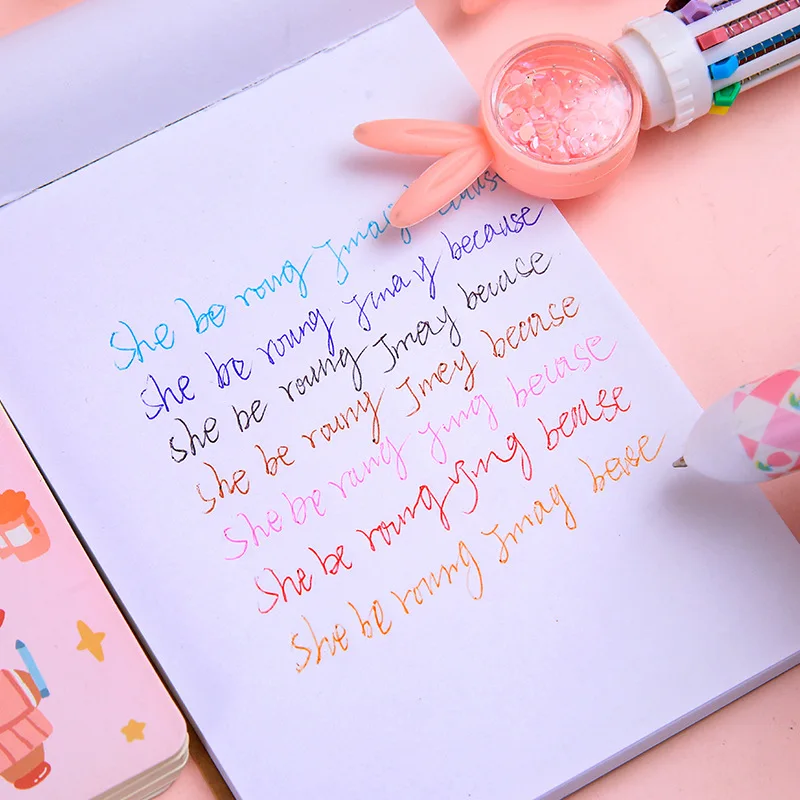 She be roung Jmay cause
She be roung Jmay because
She be roung Jmay becuase
She be rouny Jmey becase
She be rang Jing becuase
She be roung ying becuase
She be roung Jmag beuse